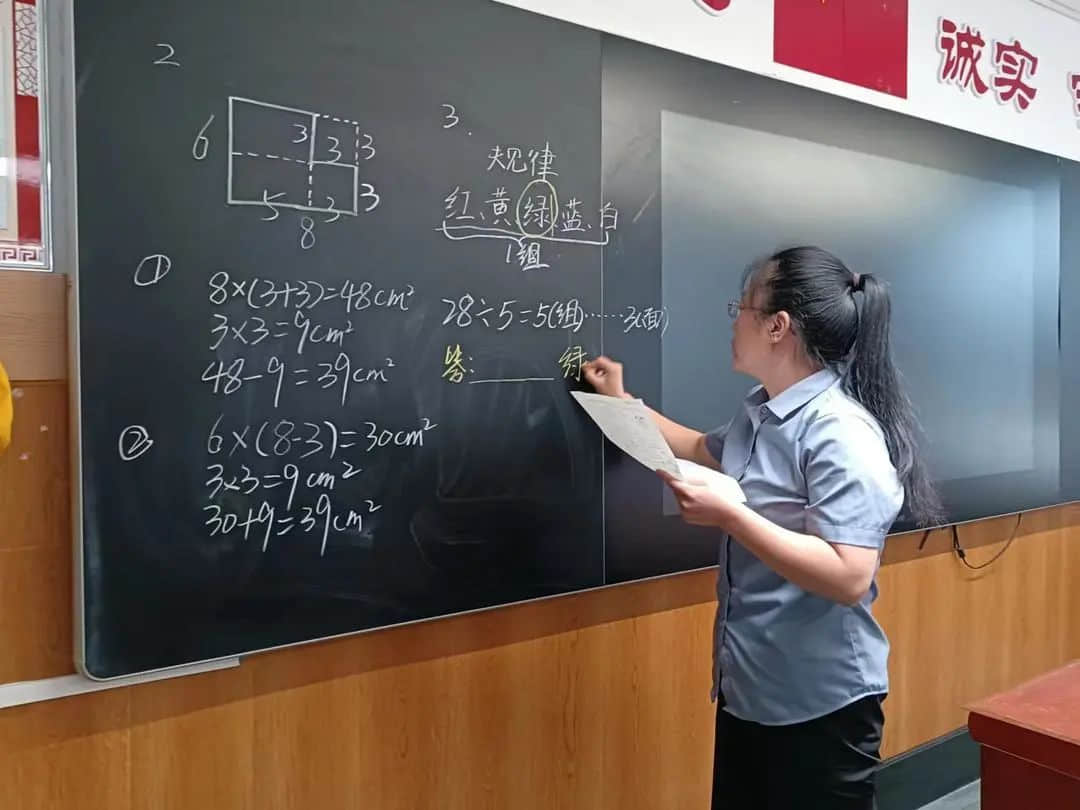 诚实
2
6
3
3
3
3
5
3
8
①
8×(3+3)=48cm²
3×3=9cm²
48-9=39cm²
②
6×(8-3)=30cm²
3×3=9cm²
30+9=39cm²
3.
规律
红、黄、绿、蓝、白
1组
28÷5=5(组)……3(面)
答:______绿